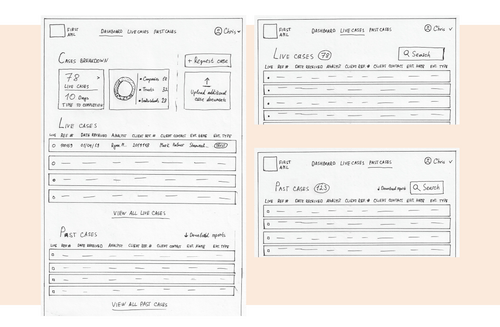 FIRST AML
DASHBOARD LIVE CASES PAST CASES
Chris
CASES BREAKDOWN
+ Request case
78
LIVE CASES
10 Days
TIME TO COMPLETION
Companies 18
Trusts 32
Individuals 28
Upload additional case documents
LIVE CASES
LINE REF # DATE RECEIVED ANALYST CLIENT REF # CLIENT CONTACT ENT. NAME ENT. TYPE
VIEW ALL LIVE CASES
PAST CASES
Download reports
LINE REF # DATE RECEIVED ANALYST CLIENT REF # CLIENT CONTACT ENT. NAME ENT. TYPE
VIEW ALL PAST CASES
FIRST AML
DASHBOARD LIVE CASES PAST CASES
Chris
LIVE CASES 78
Search
LINE REF # DATE RECEIVED ANALYST CLIENT REF # CLIENT CONTACT ENT. NAME ENT. TYPE
FIRST AML
DASHBOARD LIVE CASES PAST CASES
Chris
PAST CASES 123
Download reports
Search
LINE REF # DATE RECEIVED ANALYST CLIENT REF # CLIENT CONTACT ENT. NAME ENT. TYPE